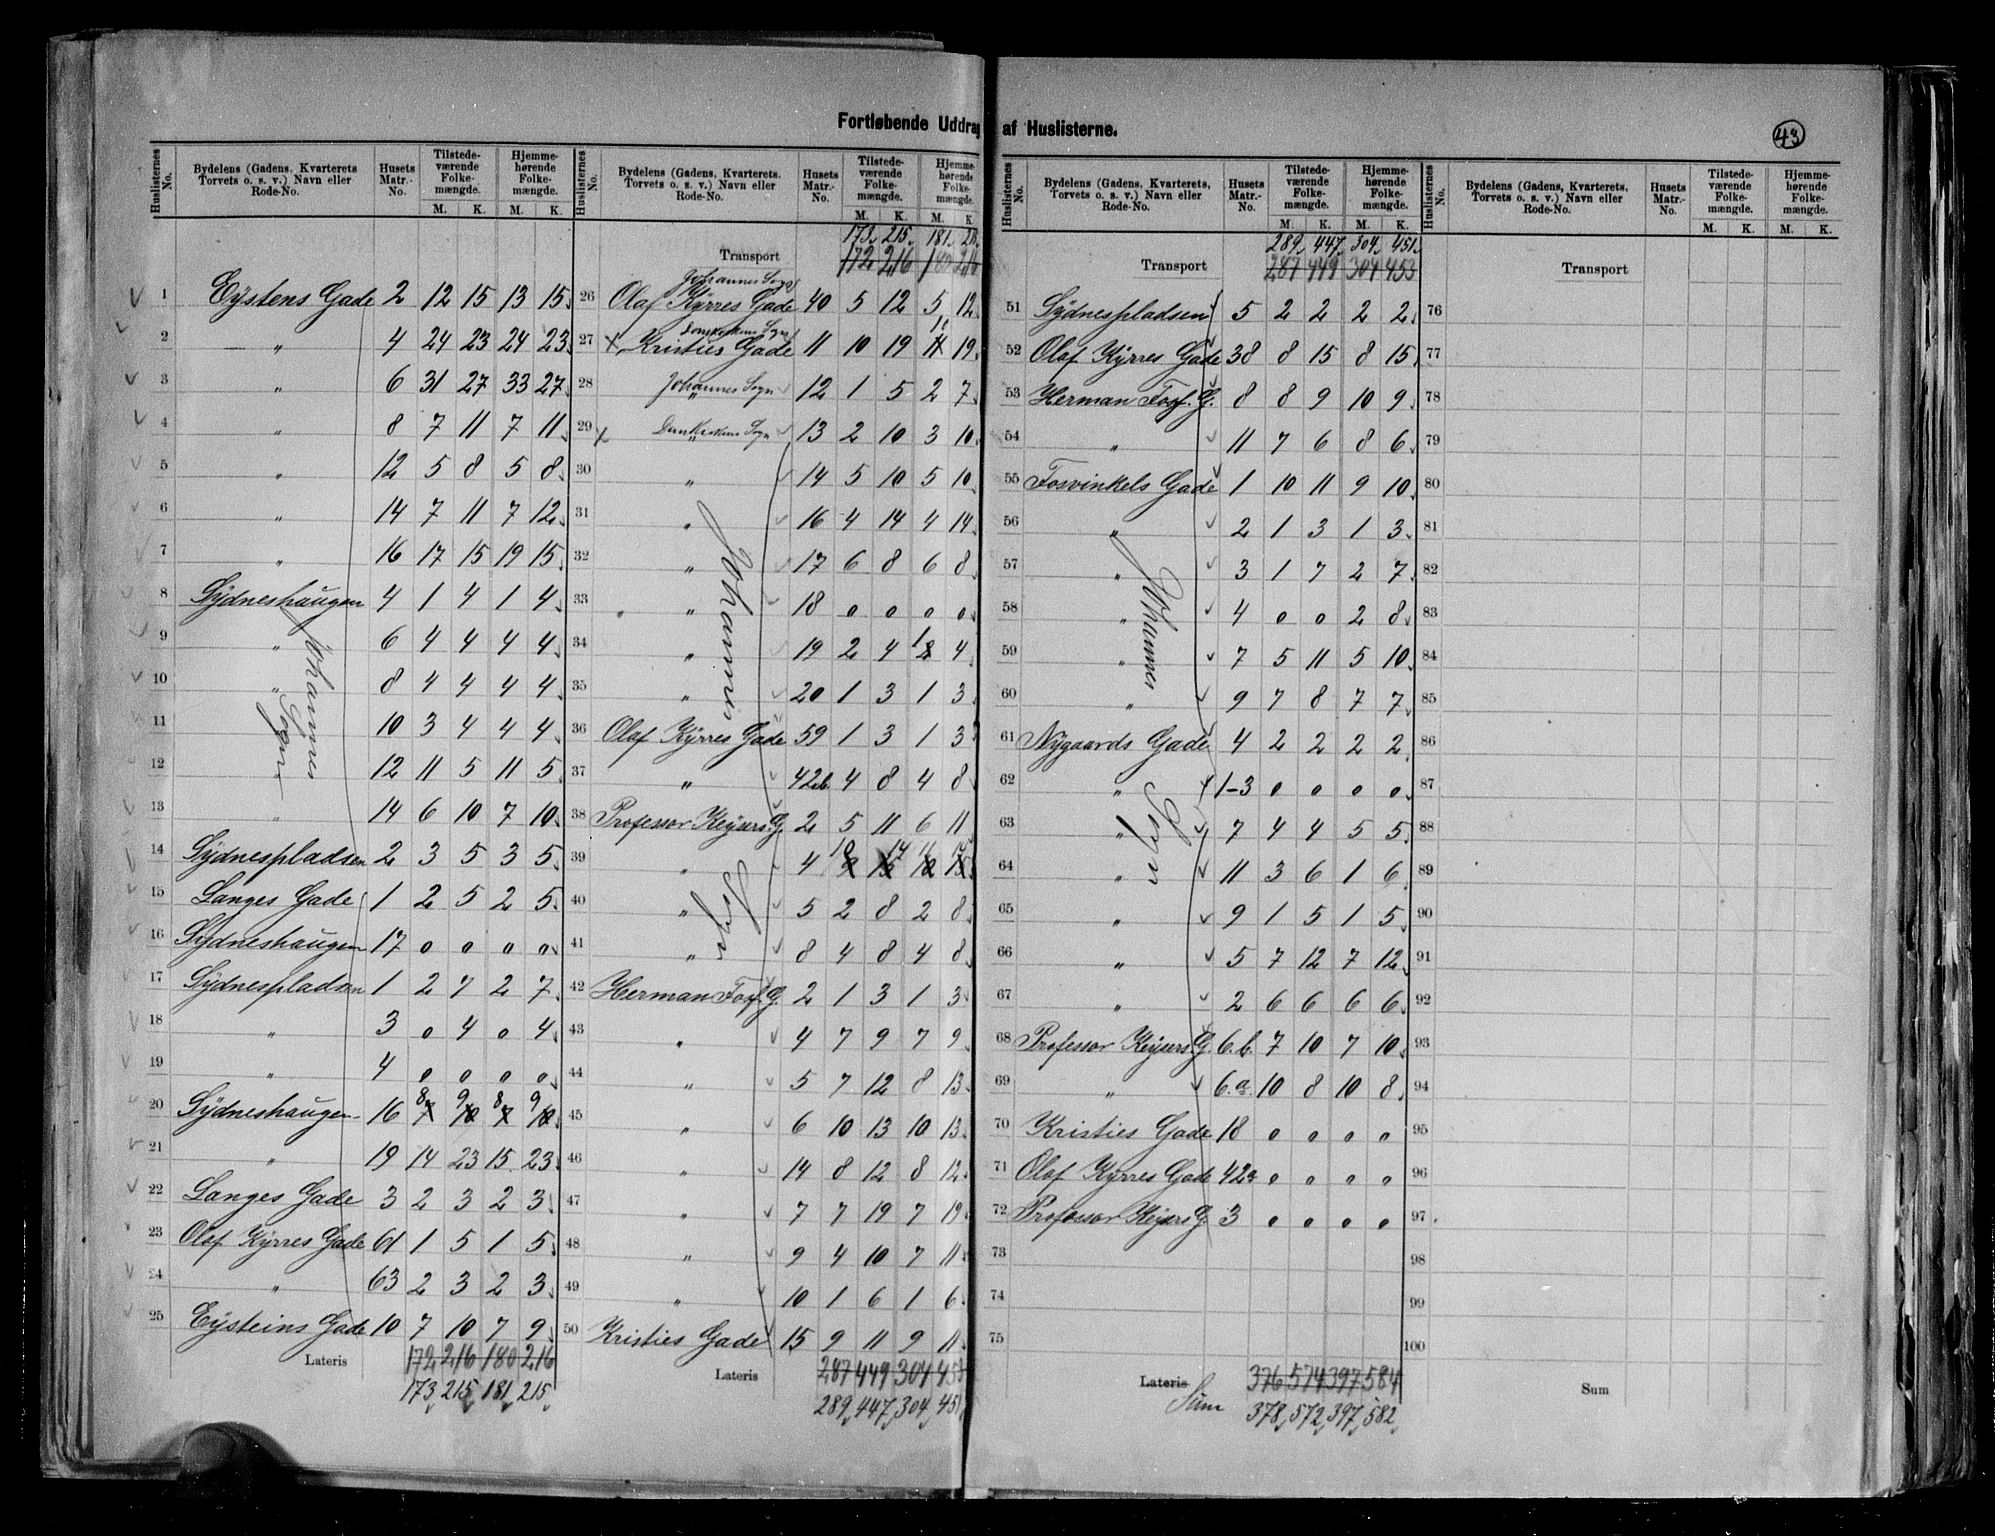 Fortløbende Uddrag af Huslisterne.
43
Huslisternes No. | Bydelens (Gadens, Kvarterets Torvets o. s. v.) Navn eller Rode-No. | Husets Matr.-No. | Tilstedeværende Folkemængde. M. K. | Hjemmehørende Folkemængde. M. K.
1 Eystens Gade 2 12 15 13 15
2 " 4 24 23 24 23
3 " 6 31 27 33 27
4 " 8 7 11 7 11
5 " 12 5 8 5 8
6 " 14 7 11 7 12
7 " 16 17 15 19 15
8 Sydneshaugen 4 1 4 1 4
9 " 6 4 4 4 4
10 " 8 4 4 4 4
11 10 3 4 4 4
12 12 11 5 11 5
13 " 14 6 10 7 10
Johannes Sogn
14 Sydnespladsen 2 3 5 3 5
15 Langes Gade 1 2 5 2 5
16 Sydneshaugen 17 0 0 0 0
17 Sydnespladsen 1 2 7 2 7
18 " 3 0 4 0 4
19 " 4 0 0 0 0
20 Sydneshaugen 16 8 9 8 9
21 " 19 14 23 15 23
22 Langes Gade 3 2 3 2 3
23 Olaf Kyrres Gade 61 1 5 1 5
24 " 63 2 3 2 3
25 Eysteins Gade 10 7 10 7 9
Lateris 172 216 180 216
173 215 181 215
Huslisternes No. | Bydelens (Gadens, Kvarterets. Torvets o. s. v.) Navn eller Rode-No. | Husets Matr.-No. | Tilstedeværende Folkemængde. M. K. | Hjemmehørende Folkemængde. M. K.
173 215 181
Transport 172 216
Johannes Sogn
26 Olaf Kyrres Gade 40 5 12 5 12
Domkirkens Sogn
27 x Kristies Gade 11 10 19 10 19
28 Johannes Sogn 12 1 5 2 7
29 x Domkirkens Sogn 13 2 10 3 10
30 " 14 5 10 5 10
31 " 16 4 14 4 14
32 " 17 6 8 6 8
33 " 18 0 0 0 0
34 " 19 2 4 1 4
35 " 20 1 3 1 3
36 Olaf Kyrres Gade 59 1 3 1 3
37 " 42b 4 8 4 8
38 Professor Keysers G. 2 5 11 6 11
39 " 4 10 14 11 14
40 " 5 2 8 2 8
41 " 8 4 8 4 8
Johannes Sogn
42 Herman Foss. G. 2 1 3 1 3
43 " 4 7 9 7 9
44 " 5 7 12 8 13
45 " 6 10 13 10 13
46 " 14 8 12 8 12
47 " 7 7 19 7 19
48 " 9 4 10 7 11
49 " 10 1 6 1 6
50 Kristies Gade 15 9 11 9 11
Lateris 287 449 304 453
289 447 304 451
Huslisternes No. | Bydelens (Gadens, Kvarterets, Torvets o. s. v.) Navn eller Rode-No. | Husets Matr.-No. | Tilstedeværende Folkemængde. M. K. | Hjemmehørende Folkemængde. M. K.
289 447 304 451
Transport 287 449 304 453
51 Sydnespladsen 5 2 2 2 2
52 Olaf Kyrres Gade 38 8 15 8 15
53 Herman Foss. G. 8 8 9 10 9
54 " 11 7 6 8 6
55 Fosvinkels Gade 1 10 11 9 10
56 " 2 1 3 1 3
57 " 3 1 7 2 7
58 " 4 0 0 2 8
59 " 7 5 11 5 10
60 " 9 7 8 7 7
61 Nygaards Gade 4 2 2 2 2
62 " 1-3 0 0 0 0
63 " 7 4 4 5 5
64 " 11 3 6 1 6
65 " 9 1 5 1 5
66 " 5 7 12 7 12
67 " 2 6 6 6 6
Johannes Sogn
68 Professor Keysers G. 6.b. 7 10 7 10
69 " 6.a 10 8 10 8
70 Kristies Gade 18 0 0 0 0
71 Olaf Kyrres Gade 42a 0 0 0 0
72 Professor Keysers G. 3 0 0 0 0
73
74
75
Lateris 376 574 397 584
Sum 378 572 397 582
Huslisternes No. | Bydelens (Gadens, Kvarterets, Torvets o. s. v.) Navn eller Rode-No. | Husets Matr.-No. | Tilstedeværende Folkemængde. M. K. | Hjemmehørende Folkemængde. M. K.
Transport
76
77
78
79
80
81
82
83
84
85
86
87
88
89
90
91
92
93
94
95
96
97
98
99
100
Sum